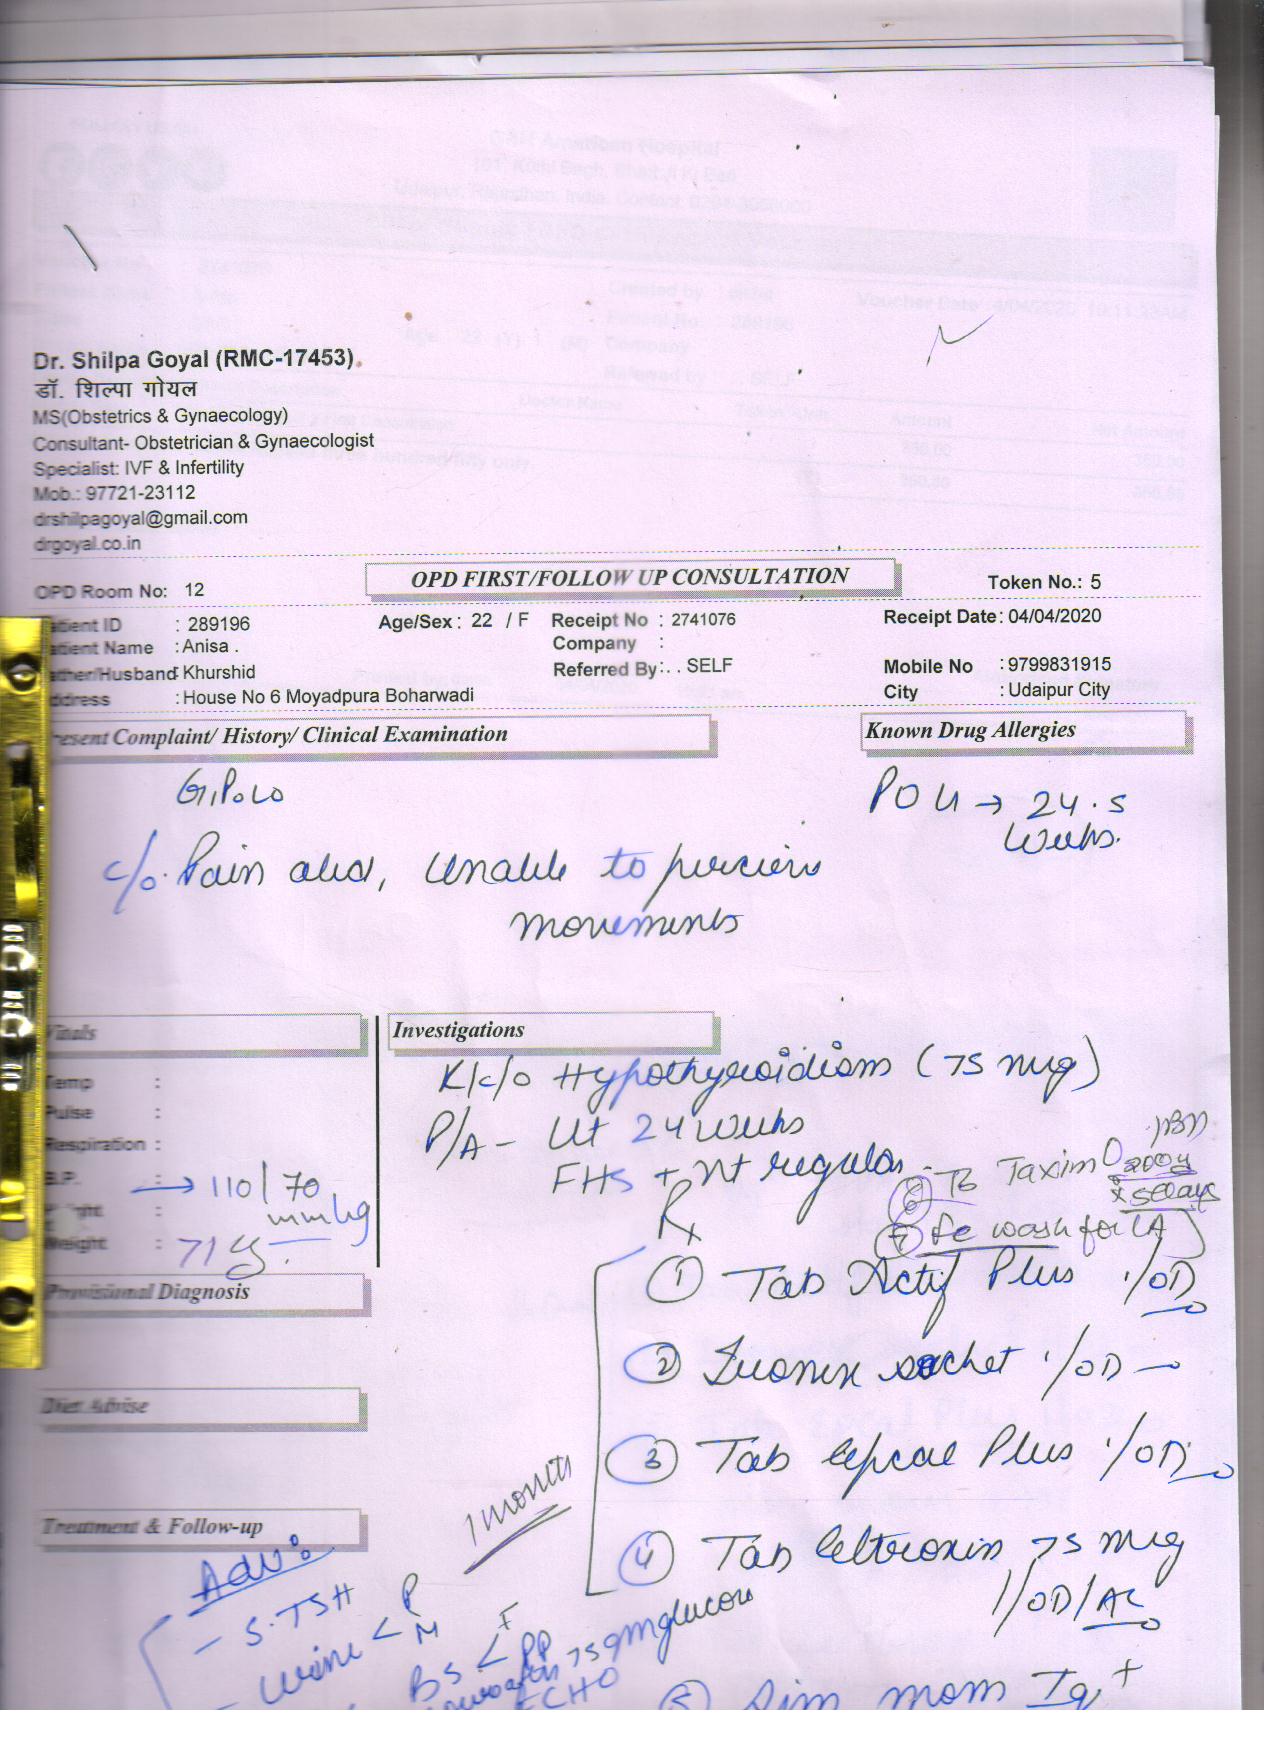 Dr. Shilpa Goyal (RMC-17453).
डॉ. शिल्पा गोयल
MS(Obstetrics & Gynaecology)
Consultant- Obstetrician & Gynaecologist
Specialist: IVF & Infertility
Mob.: 97721-23112
drshilpagoyal@gmail.com
drgoyal.co.in
OPD Room No: 12
OPD FIRST/FOLLOW UP CONSULTATION
Token No.: 5
Patient ID : 289196
Age/Sex : 22 / F
Receipt No : 2741076
Receipt Date: 04/04/2020
Patient Name : Anisa .
Company :
Father/Husband: Khurshid
Referred By: . . SELF
Mobile No : 9799831915
Address : House No 6 Moyadpura Boharwadi
City : Udaipur City
Present Complaint/ History/ Clinical Examination
Known Drug Allergies
G1P0L0
POG → 24.5
Weeks.
c/o. Pain abd, Unable to perceive
movements
Vitals
Investigations
Temp :
Pulse :
Respiration :
B.P. : → 110/70
mmHg
Height :
Weight : 71
K/c/o Hypothyroidism (75 mcg)
P/A - Ut 24 Weeks
FHS + regular
Tab Taxim O 200
x 5 days
wash for LA
Rx
Provisional Diagnosis
① Tab Actif Plus 1/OD
Diet Advise
② sachet 1/OD
③ Tab Plus 1/OD
1 month
Treatment & Follow-up
④ Tab Eltroxin 75 mcg
1/OD/AC
Adv:
- S.TSH
- Urine < R
M
BS < F
PP
75 gm glucose
ECHO
⑤ mom